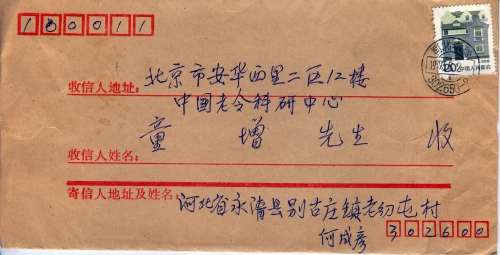 100011
收信人地址:北京市安华西里二区12楼
中国老令科研中心
童 增 先生 收
收信人姓名:
寄信人地址及姓名:河北省永清县别古庄镇老幼屯村
何成彦 302600
中国人民邮政